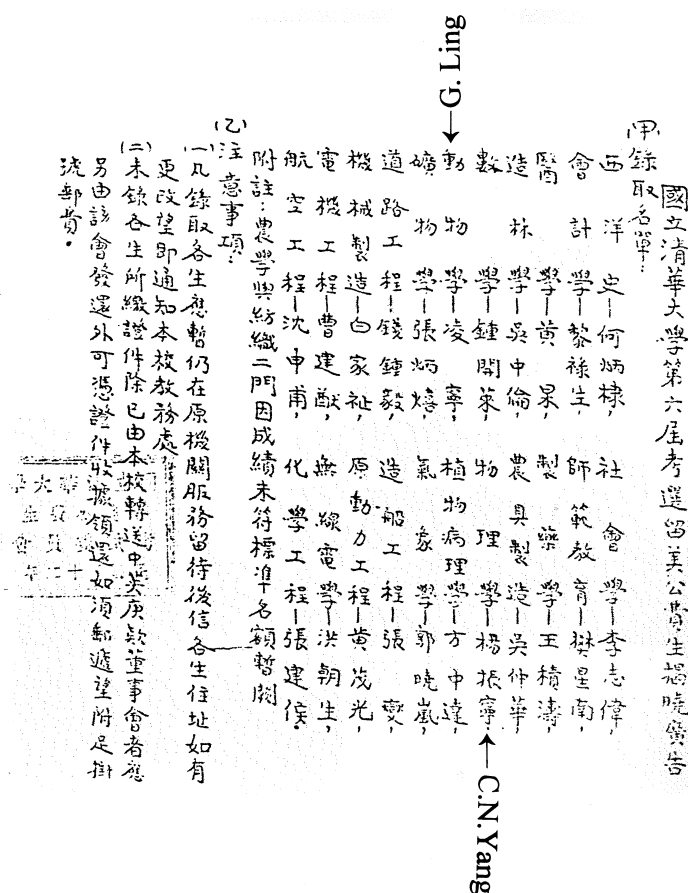 國立清華大學第六屆考選留美公費生揭曉廣告
(甲)錄取名單:
西洋史—何炳棣, 社會學—李志偉,
會計學—黎祿生, 師範教育—樊星南,
醫學—黃杲, 製藥學—王積濤,
造林學—吳中倫, 農具製造—吳仲華,
數學—鍾開萊, 物理學—楊振寧, ← C.N.Yang
← G. Ling 動物學—凌寧, 植物病理學—方中達,
礦物學—張炳熺, 氣象學—郭曉嵐,
道路工程—錢鍾毅, 造船工程—張燮,
機械製造—白家祉, 原動力工程—黃茂光,
電機工程—曹建猷, 無線電學—洪朝生,
航空工程—沈申甫, 化學工程—張建侯.
附註:農學與紡織二門因成績未符標準名額暫闕
(乙)注意事項:
(一)凡錄取各生應暫仍在原機關服務留待後信各生住址如有
更改望即通知本校教務處
(二)未錄各生所繳證件除已由本校轉送中英庚款董事會者應
另由該會發還外可憑證件收據領還如須郵遞望附足掛
號郵費.